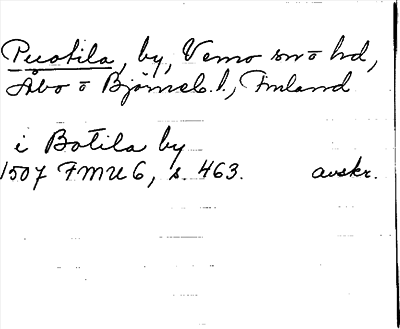 Puotila, by, Vemo sn o hd,
Åbo o Björneb. l., Finland
i Botila by
1507 FMU 6, s. 463. avskr.